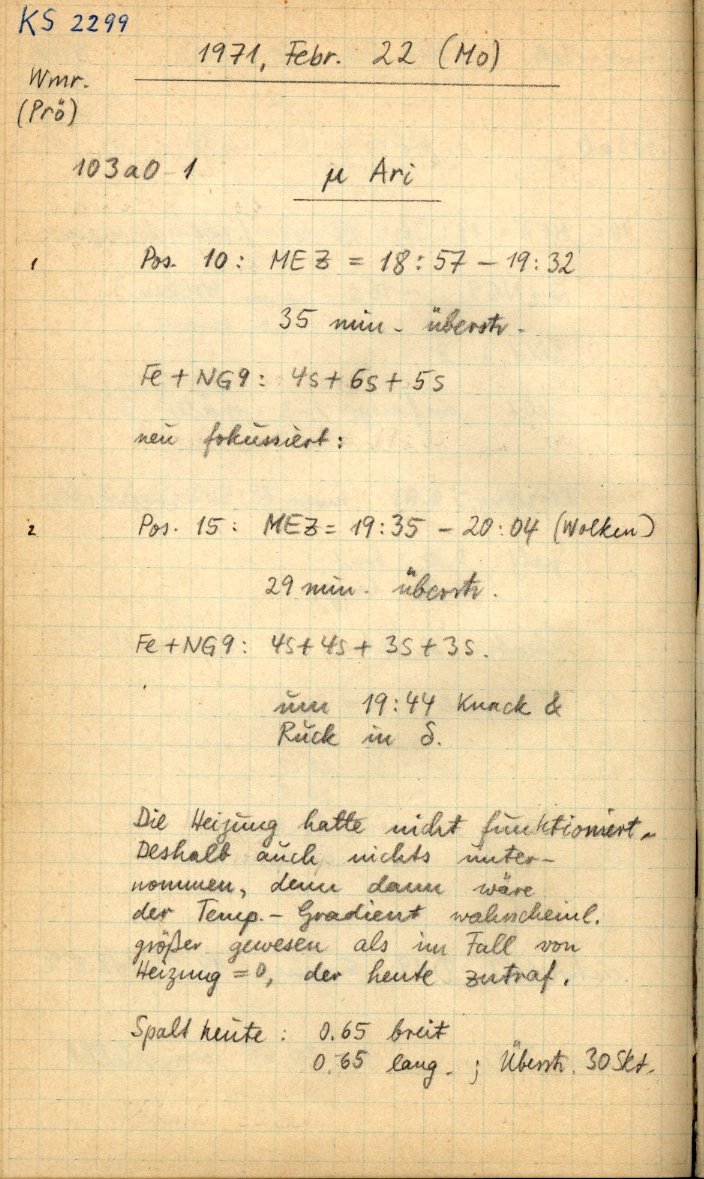 KS 2299
1971, Febr. 22 (Mo)
Wmr.
(Prö)
103a0-1 µ Ari
1 Pos. 10: MEZ = 18:57 - 19:32
35 min. überstr.
Fe + NG9: 4s + 6s + 5s
neu fokussiert:
2 Pos. 15: MEZ = 19:35 - 20:04 (Wolken)
29 min. überstr.
Fe + NG9: 4s + 4s + 3s + 3s.
um 19:44 Knack &
Ruck in δ.
Die Heizung hatte nicht funktioniert.
Deshalb auch nichts unter-
nommen, denn dann wäre
der Temp.-Gradient wahrscheinl.
größer gewesen als im Fall von
Heizung = 0, der heute zutraf.
Spalt heute: 0.65 breit
0.65 lang. ; Überstr. 30 Skt.